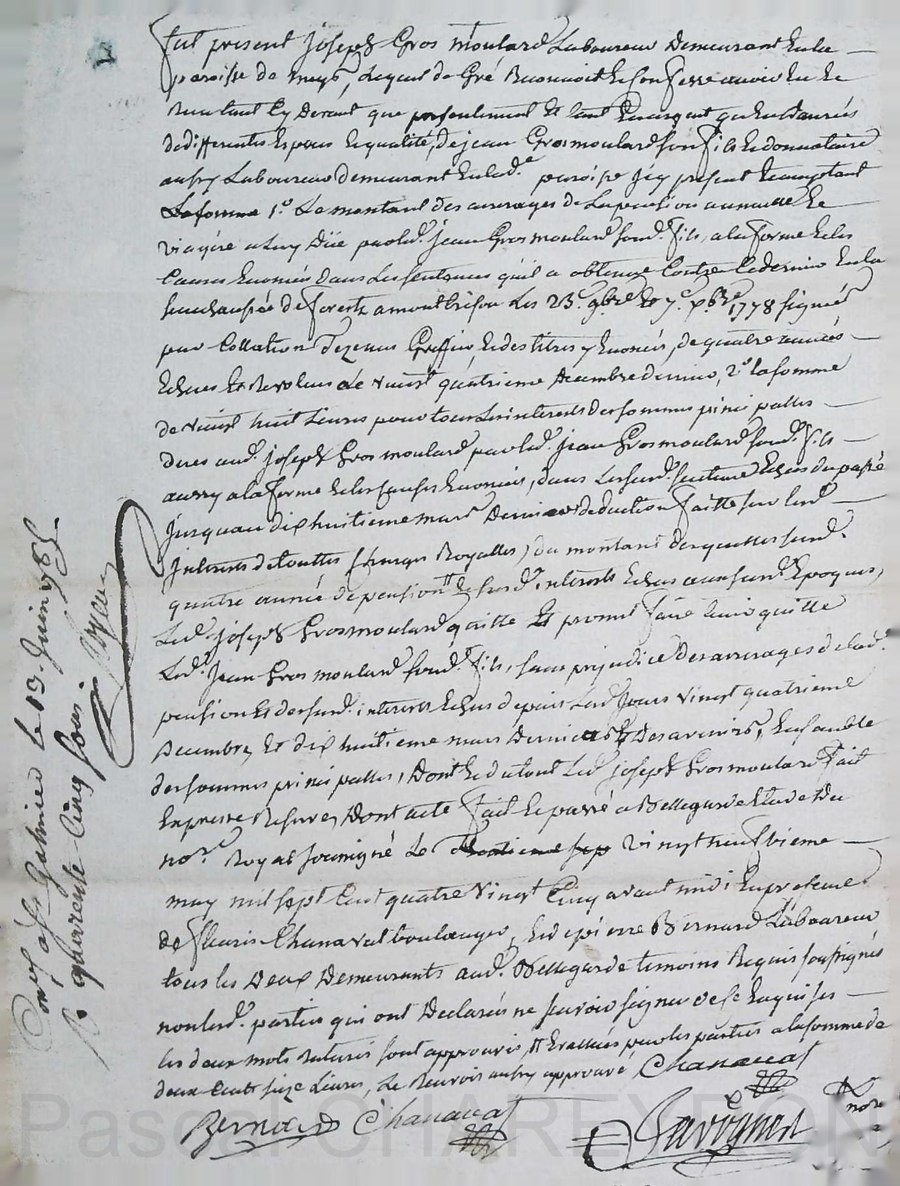 fut present joseph Gros moulard Laboureur Demeurant en la
paroisse de mays, Lequel de Gré Reconnoit et Confesse avoir eu et
Receu tant cy Devant que presentement et tant en argent qu'en danrées
de differentes Especes et qualité, de jean Grosmoulard son fils et donnataire
aussy Laboureur demeurant en lad.e paroisse jcy present et acceptant
La somme 1.o Le montant des arrerages de La pension annuelle et
viagere a Luy Düe par led. jean Grosmoulard sond. fils, a la forme et les
Causes Enoncés Dans Les sentences qu'il a obtenue Contre Ce dernier En la
senechaussée de forestz a montbrison Les 23.e 9bre et 7.e xbre 1778 signées
par Collation Dezevaux Greffier, et des titres y Enoncés, de quatre années
Echues et Revolues Le vingt quatrieme Decembre dernier, 2.o la somme
de vingt huit Livres pour tous Les interets des sommes principalles
dues aud. joseph Grosmoulard par led. jean Grosmoulard sond. fils
aussy a la forme et les causes Enoncées, dans Les sus d. sentence Echus du passé
jusquau dix huitieme mars Dernier deduction faitte sur lesd.
jnterets de touttes Charges Royalles, du montant desquelles susd.
quatre année de pension # et susd. interets Echus aux susd. Epoques,
Led. joseph Grosmoulard quitte Et promet faire tenir quitte
Led. jean Grosmoulard sond. fils, sans prejudice des arrerages de lad.
pension Et des sus d. interets Echus depuis Les d. jours vingt quatrieme
Decembre, Et dix huitieme mars Derniers Et Des avenirs, Ensemble
des sommes principalles, Dont Et du tout Led. joseph Grosmoulard fait
Expresse Reserve, Dont acte fait Et passé a Bellegarde Etude Du
no.re Royal soussigné Le vingt neufvieme
may mil sept Cent quatre vingt Cinq avant midi En presence
de fleuris Chanavat boulanger, Et de pierre Bernard Laboureur
tous les Deux Demeurants aud. Bellegarde temoins Requis soussignés
non les d. parties qui ont Declarés ne savoir signer de ce Enquises
les deux mots Raturés sont approuvés, # Evaluées par les parties a la somme de
deux Cents seize Livres, Le Renvois aussy approuvé Chanavat
Bernard Chanavat
nore
Con.lé a St Galmier le 13. Juin 1785.
R. quarente Cinq sous